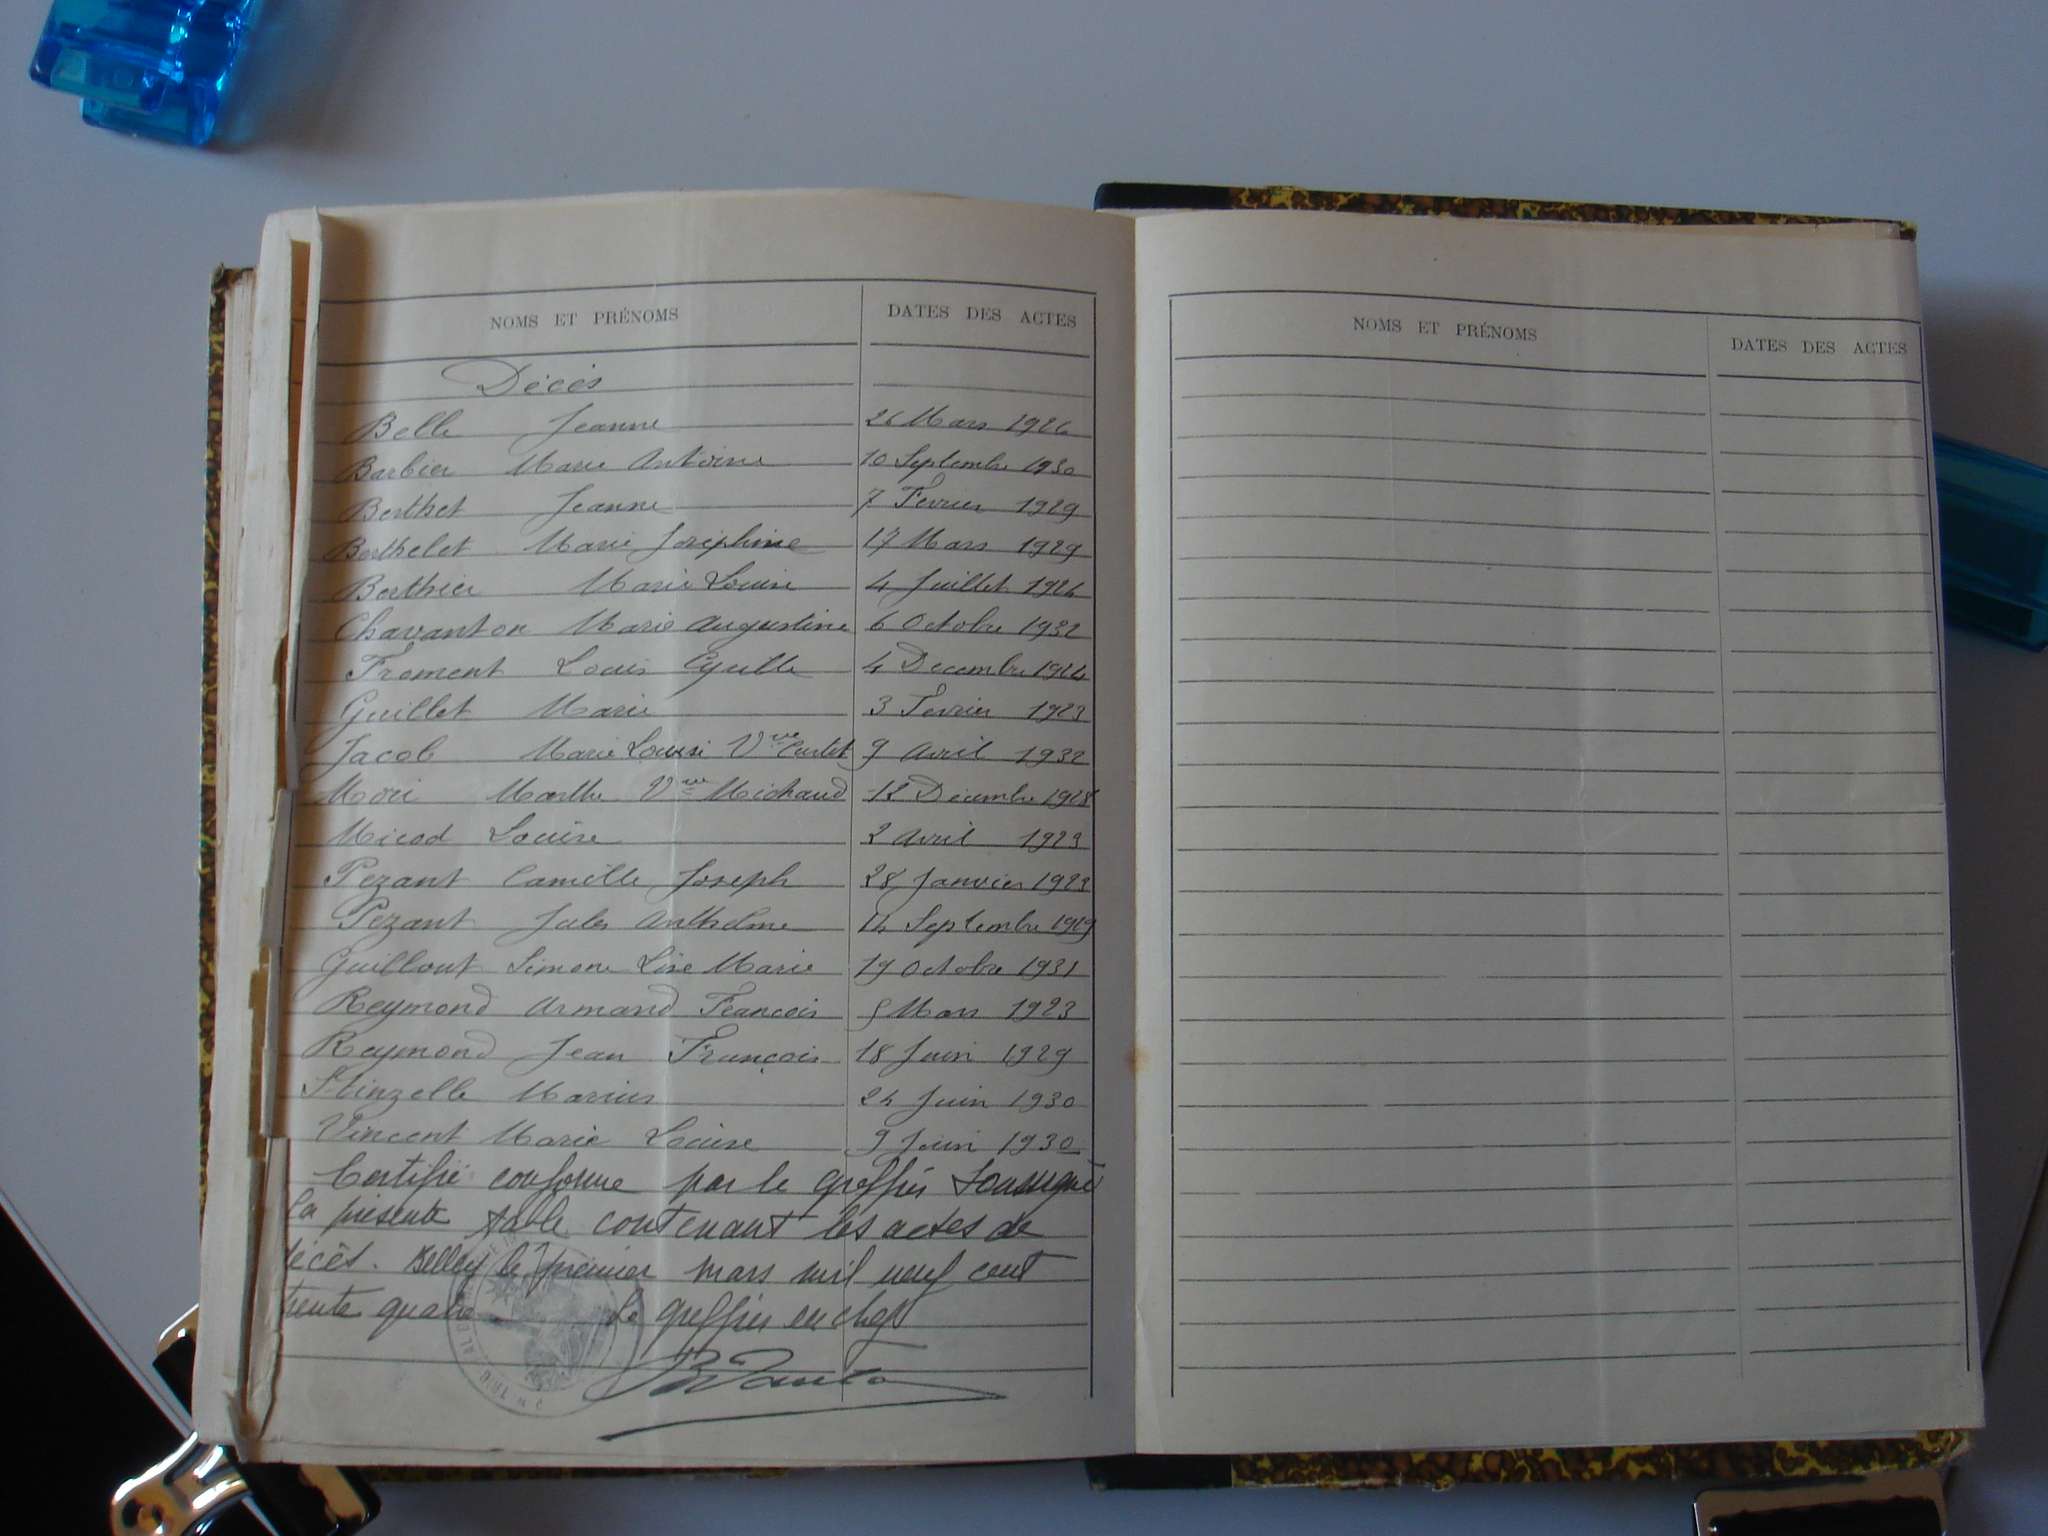 NOMS ET PRÉNOMS DATES DES ACTES
Décès
Belle Jeanne 26 Mars 1926
Barbier Marie Antoine 10 Septembre 1930
Berthet Jeanne 7 Fevrier 1929
Berthelet Marie Joséphine 17 Mars 1929
Berthier Marie Louise 4 Juillet 1926
Chavanton Marie Augustine 6 Octobre 1932
Froment Louis 4 Decembre 1924
Guillet Marie 3 Fevrier 1923
Jacob Marie Louise Vve Curlet 9 Avril 1932
Marthe Vve Michaud 12 Décembre 1928
Micod Louise 2 Avril 1923
Pezant Camille Joseph 28 Janvier 1923
Pezant Jules Anthelme 14 Septembre 1929
Guillout Simone Lise Marie 19 Octobre 1931
Reymond Armand Francois 5 Mars 1923
Reymond Jean François 18 Juin 1929
Stinzelle Marius 24 Juin 1930
Vincent Marie Louise 9 Juin 1930
Certifié conforme par le greffier soussigné
la présente table contenant les actes de
décès. Belley le premier mars mil neuf cent
trente quatre Le greffier en chef
NOMS ET PRÉNOMS DATES DES ACTES